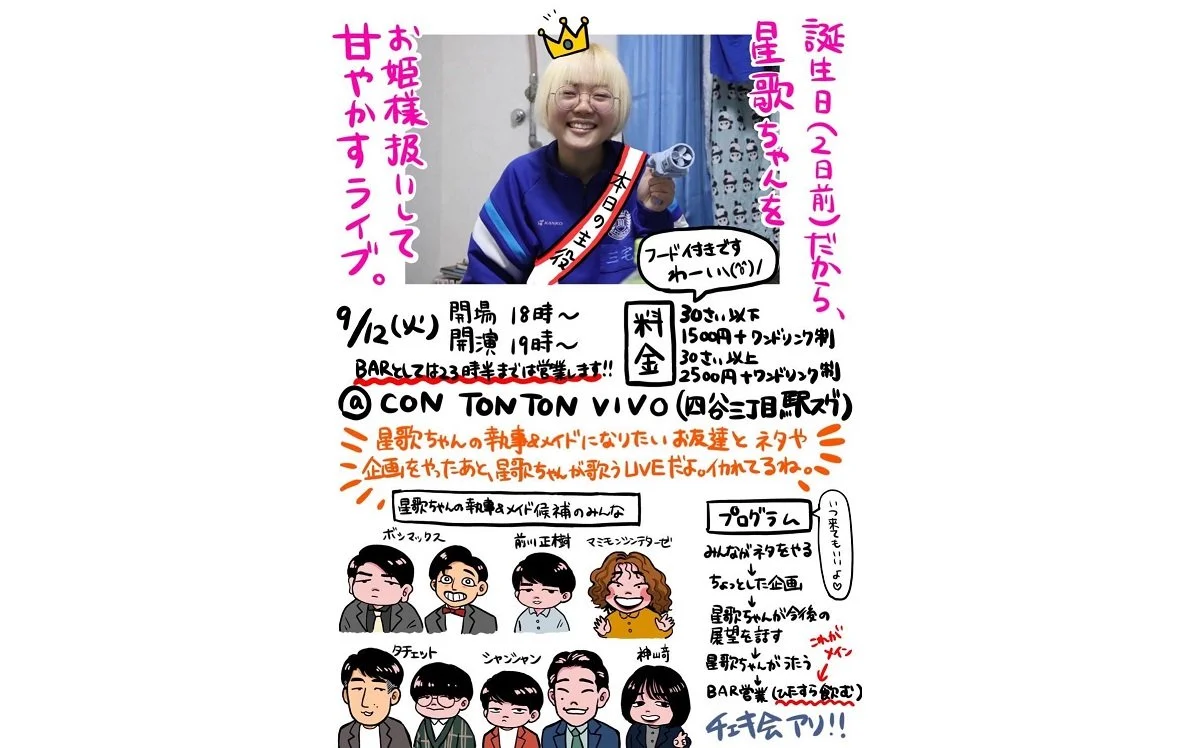 誕生日(2日前)だから、
星歌ちゃんを
お姫様扱いして
甘やかすライブ。
KANKO
三宅
本日の主役
フード付きです
わーい\(^o^)/
9/12(火)
開場 18時～
開演 19時～
BARとしては23時半までは営業します!!
料金
30さい以下
1500円+ワンドリンク制
30さい以上
2500円+ワンドリンク制
@ CON TONTON VIVO(四谷三丁目駅スグ)
星歌ちゃんの執事&メイドになりたいお友達とネタや
企画をやったあと、星歌ちゃんが歌うLIVEだよ。イカれてるね。
星歌ちゃんの執事&メイド候補のみんな
ボンマックス
前川正樹
マミモンツンテターゼ
タチェット
シャンシャン
神山奇
プログラム
いつ来てもいいよ♡
みんながネタをやる
↓
ちょっとした企画
↓
星歌ちゃんが今後の
展望を話す
↓
星歌ちゃんがうたう
↓
これが
メイン
BAR営業(ひたすら飲む)
チェキ会アリ!!